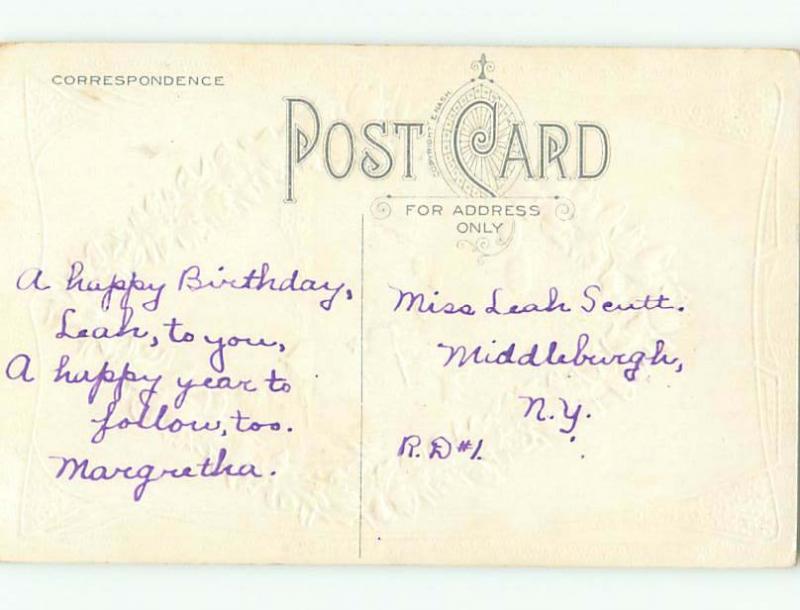 CORRESPONDENCE
POST CARD
COPYRIGHT E. NASH
FOR ADDRESS
ONLY
A happy Birthday,
Leah, to you,
A happy year to
follow, too.
Margretha.
Miss Leah Scutt.
Middleburgh,
N.Y.
R.D #1.